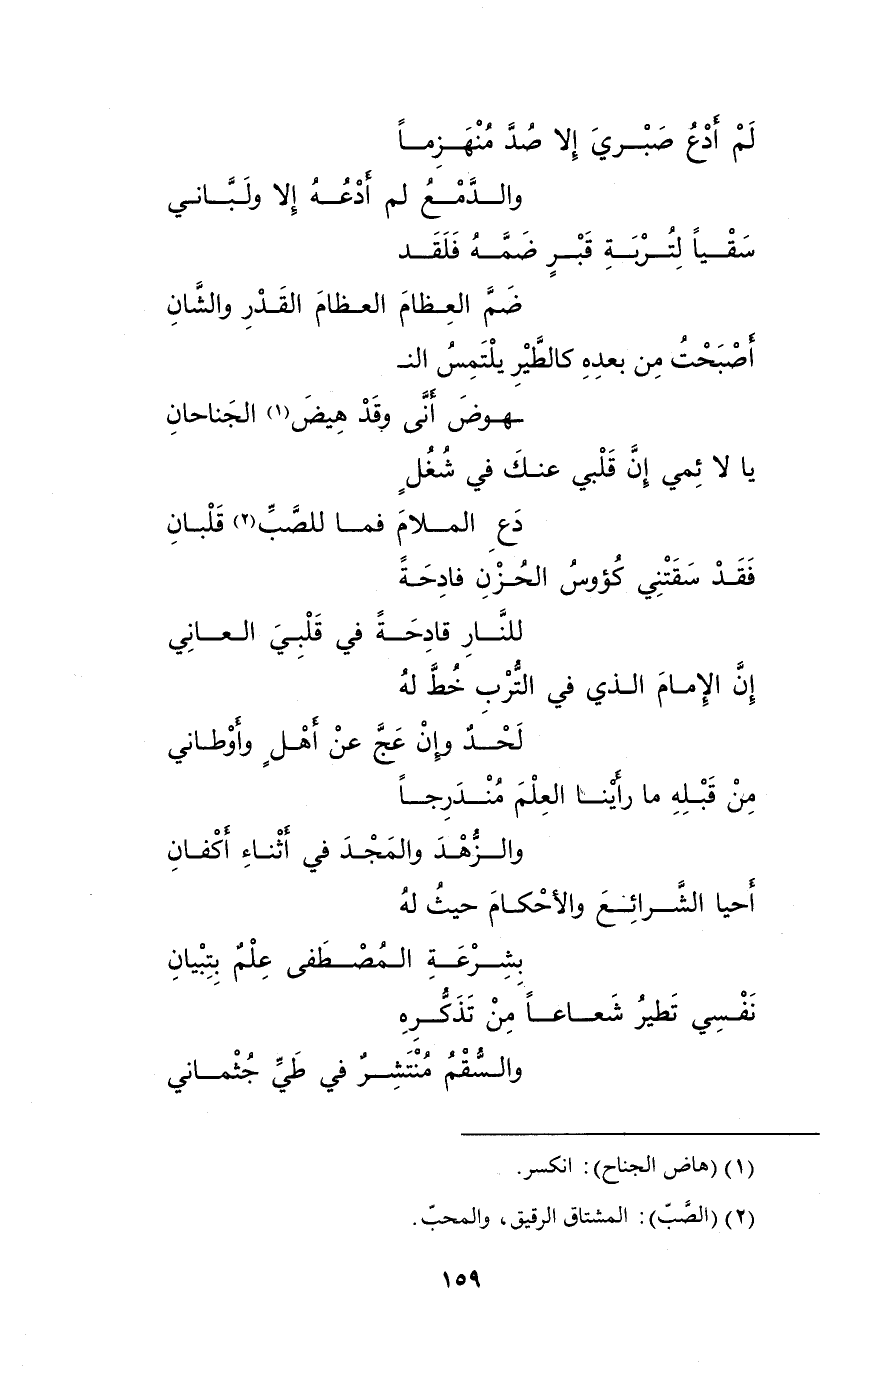 لَمْ أَدْعُ صَبْرِيَ إلا صُدَّ مُنْهَزِماً
والدَّمْعُ لم أَدْعُهُ إلا ولَبَّاني
سَقْياً لِتُرْبَةِ قَبْرٍ ضَمَّهُ فَلَقَد
ضَمَّ العِظامَ العظامَ القَدْرِ والشَّانِ
أَصْبَحْتُ مِن بعدِهِ كالطَّيْرِ يلْتَمِسُ النـ
ـهوضَ أَنَّى وقَدْ هِيضَ(١) الجَناحانِ
يا لا ئِمي إنَّ قَلْبي عنكَ في شُغُلٍ
دَعِ الملامَ فما للصَّبِّ(٢) قَلْبانِ
فَقَدْ سَقَتْنِي كُؤوسُ الحُزْنِ فادِحَةً
للنَّارِ قادِحَةً في قَلْبِيَ العانِي
إنَّ الإِمامَ الذي في التُّرْبِ خُطَّ لهُ
لَحْدٌ وإنْ عَجَّ عنْ أَهْلٍ وأَوْطاني
مِنْ قَبْلِهِ ما رأَيْنا العِلْمَ مُنْدَرِجاً
والزُّهْدَ والمَجْدَ في أَثْناءِ أَكْفانِ
أَحيا الشَّرائِعَ والأحْكامَ حيثُ لهُ
بِشِرْعَةِ المُصْطَفى عِلْمٌ بِتِبْيانِ
نَفْسِي تَطيرُ شَعاعاً مِنْ تَذَكُّرِهِ
والسُّقْمُ مُنْتَشِرٌ في طَيِّ جُثْماني
(١) (هاض الجناح): انكسر.
(٢) (الصَّبّ): المشتاق الرقيق، والمحبّ.
١٥٩